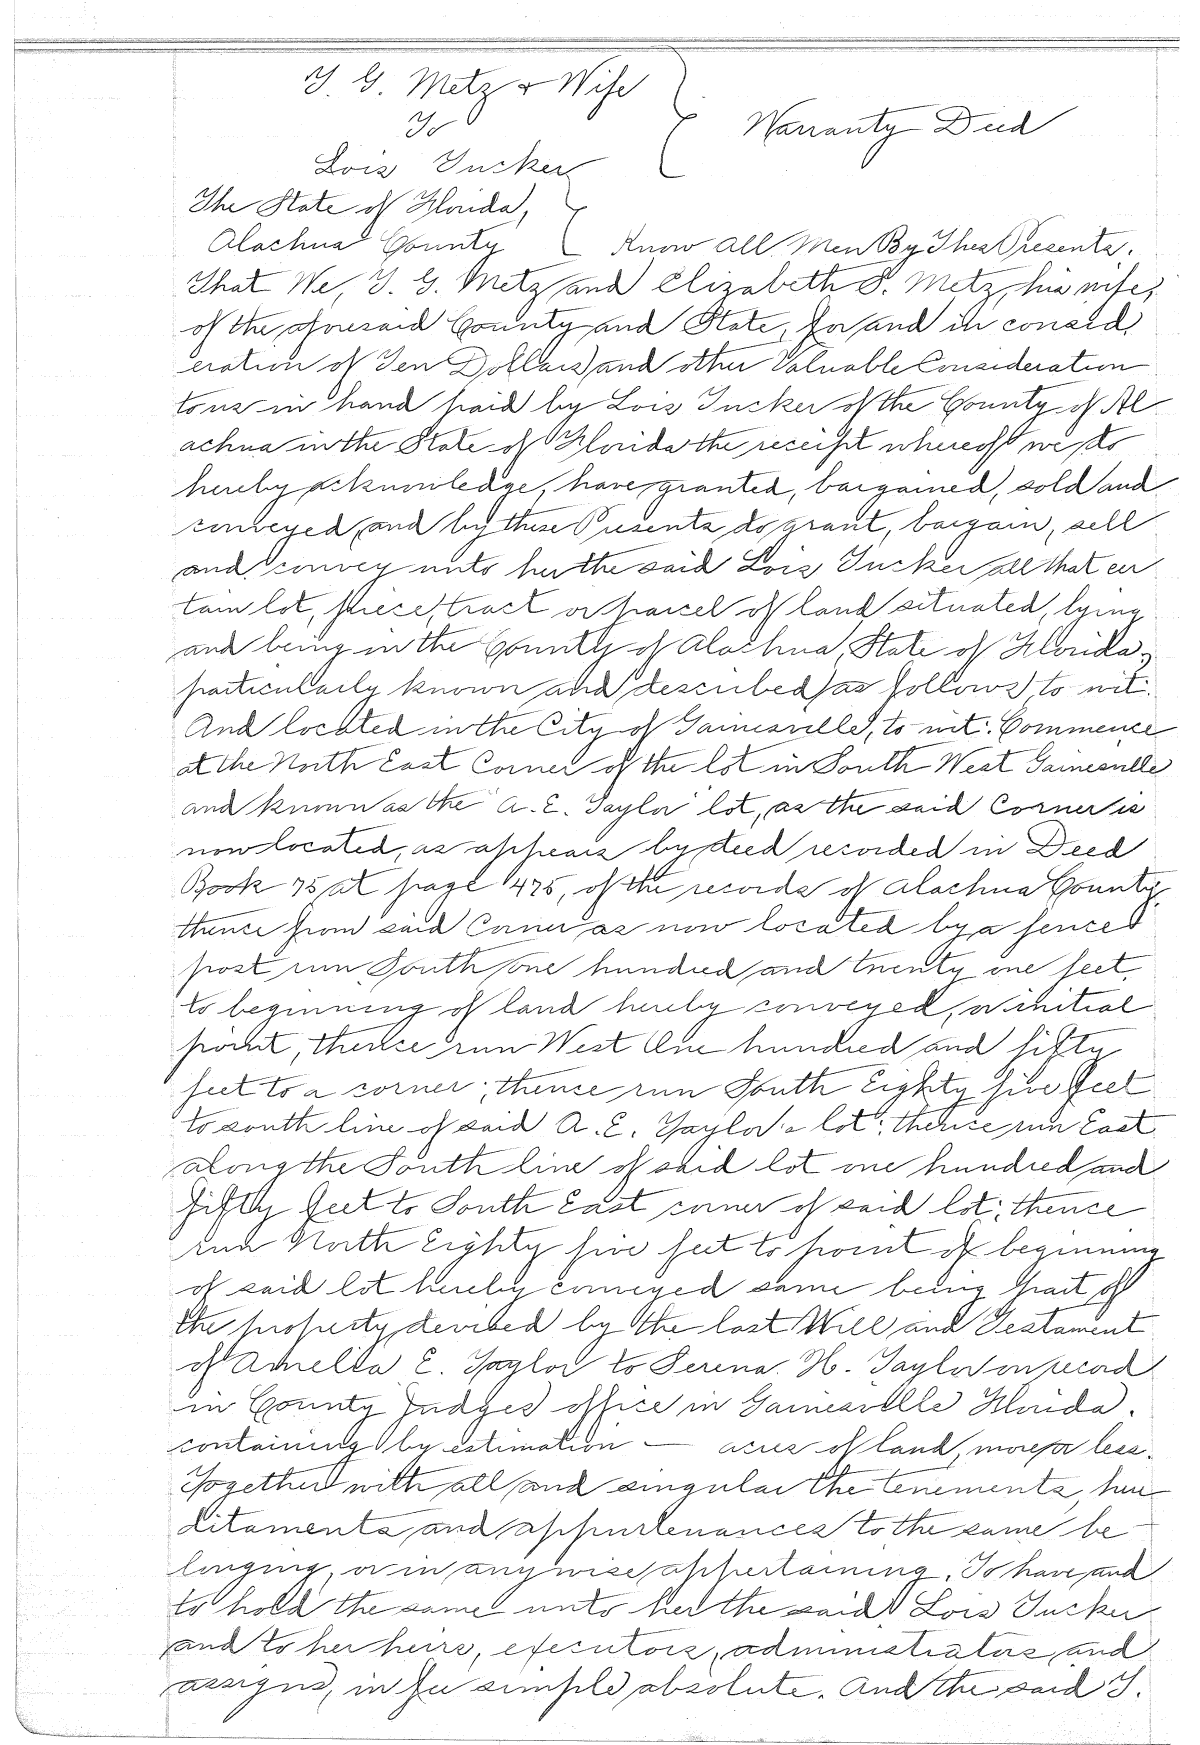 T. G. Metz & Wife
To
Warranty Deed
Lois Tucker
The State of Florida,
Alachua County Know All Men By Thes Presents.
That We, T. G. Metz and Elizabeth S. Metz, his wife,
of the aforesaid County and State, for and in consid
eration of Ten Dollars and other Valuable Consideration
tons in hand paid by Lois Tucker of the County of Al
achua in the State of Florida the receipt whereof we do
hereby acknowledge, have granted, bargained, sold and
conveyed, and by these Presents do grant, bargain, sell
and convey unto her the said Lois Tucker all that cer
tain lot, piece, tract or parcel of land situated, lying
and being in the County of Alachua, State of Florida,
particularly known and described as follows, to wit:
And located in the City of Gainesville, to wit: Commence
at the North East Corner of the lot in South West Gainesville
and known as the "A. E. Taylor" lot, as the said Corner is
now located, as appears by deed recorded in Deed
Book 75 at page 475, of the records of Alachua County,
thence from said Corner as now located by a fence
post run South one hundred and twenty one feet,
to beginning of land hereby conveyed, or initial
point, thence run West One hundred and fifty
feet to a corner; thence run South Eighty five feet
to south line of said A. E. Taylor's lot; thence run East
along the South line of said lot one hundred and
fifty feet to South East corner of said lot; thence
run North Eighty five feet to point of beginning
of said lot hereby conveyed same being part of
the property devised by the last Will and Testament
of Amelia E. Taylor to Serena H. Taylor on record
in County Judges office in Gainesville Florida.
containing by estimation — acres of land, more or less.
Together with all and singular the tenements, here
ditaments and appurtenances to the same be
longing, or in anywise appertaining. To have and
to hold the same unto her the said Lois Tucker
and to her heirs, executors, administrators and
assigns, in fee simple absolute. And the said T.